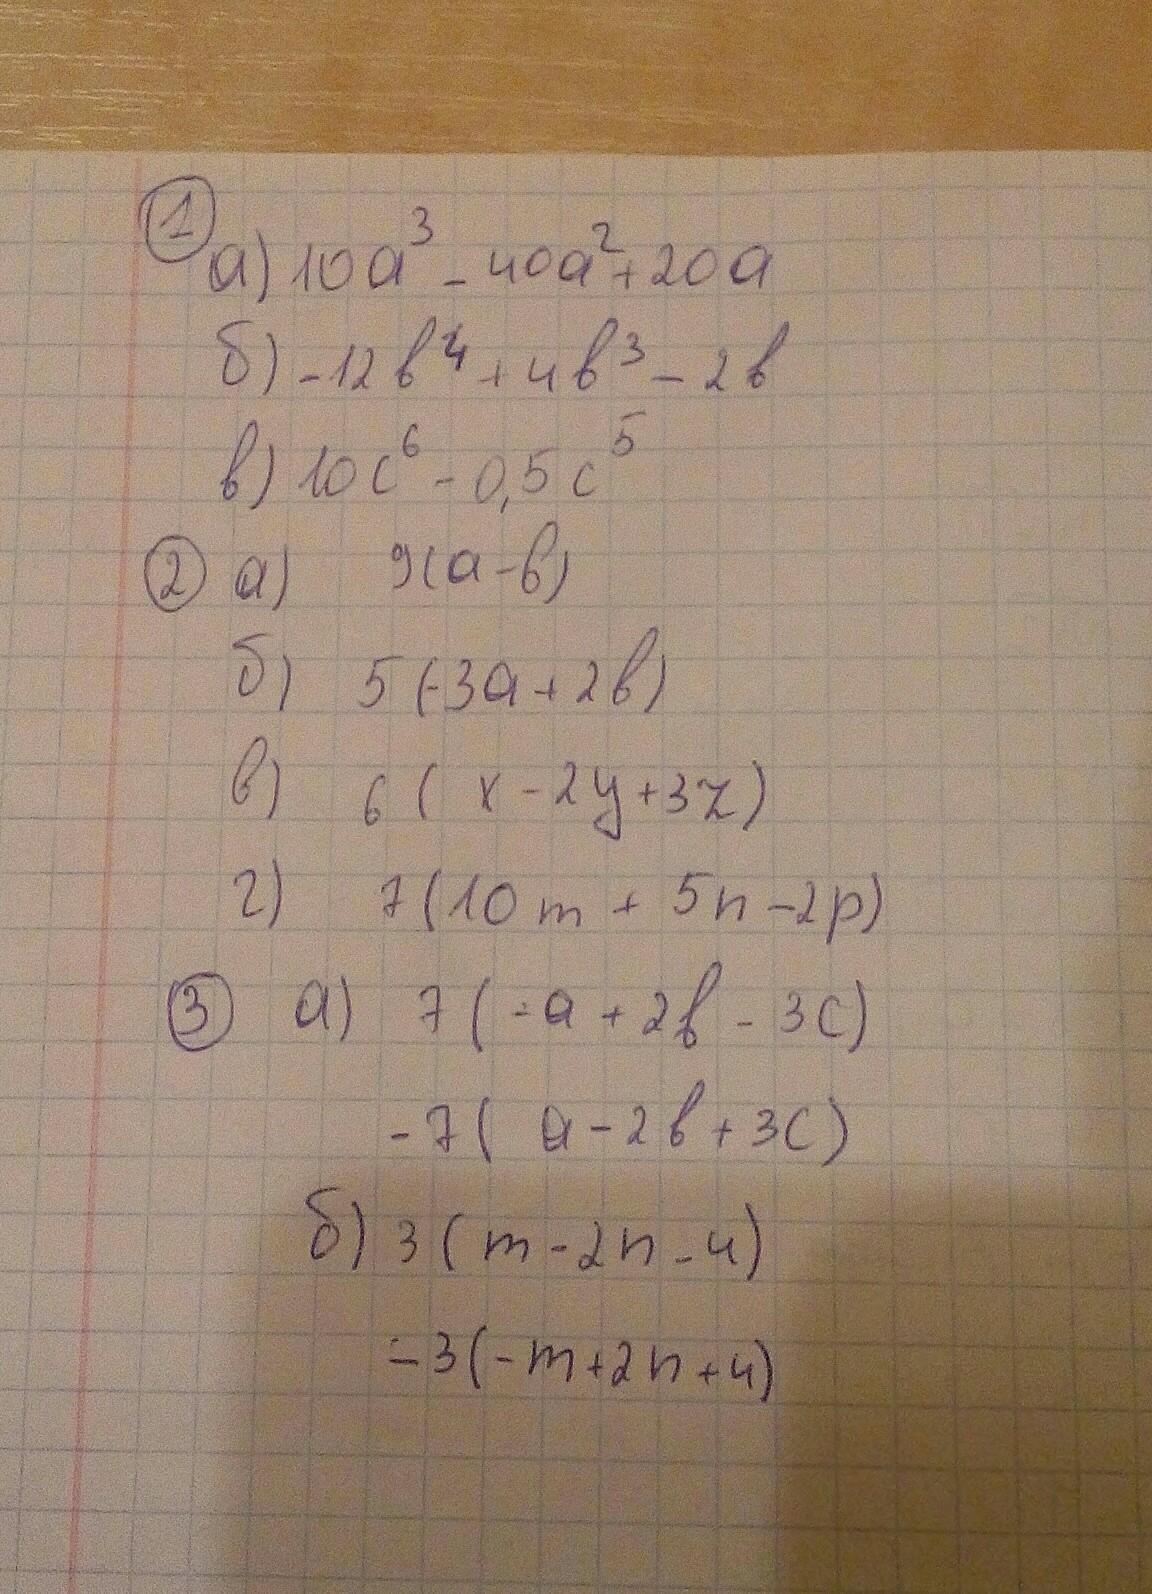 1
а) 10a³ - 40a² + 20a
б) -12b⁴ + 4b³ - 2b
в) 10c⁶ - 0,5c⁵
2 а) 9(a-b)
б) 5(-3a+2b)
в) 6(x-2y+3z)
г) 7(10m + 5n - 2p)
3 а) 7(-a + 2b - 3c)
-7(a - 2b + 3c)
б) 3(m - 2n - 4)
-3(-m + 2n + 4)